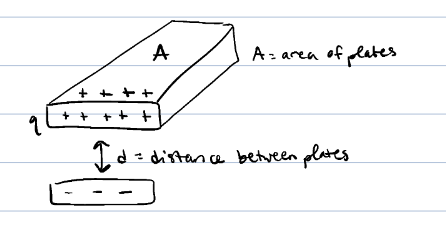 A
A = area of plates
+ + + +
q + + + + +
d = distance between plates
- - -